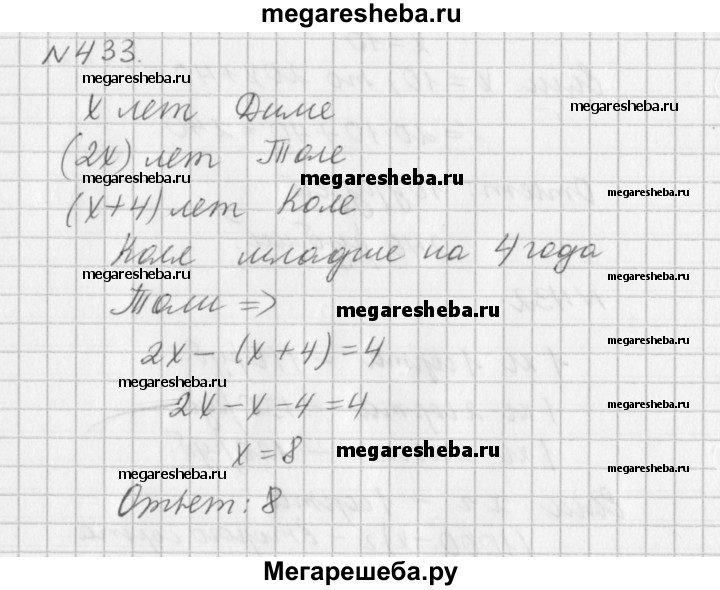 megaresheba.ru
№433.
megaresheba.ru
х лет Диме
megaresheba.ru
(2х) лет Толе
megaresheba.ru
megaresheba.ru
megaresheba.ru
(х+4) лет Коле
Коля младше на 4 года
megaresheba.ru
megaresheba.ru
Толи =>
megaresheba.ru
megaresheba.ru
2х - (х + 4) = 4
megaresheba.ru
megaresheba.ru
2х - х - 4 = 4
х = 8
megaresheba.ru
megaresheba.ru
megaresheba.ru
Ответ: 8
Мегарешеба.ру